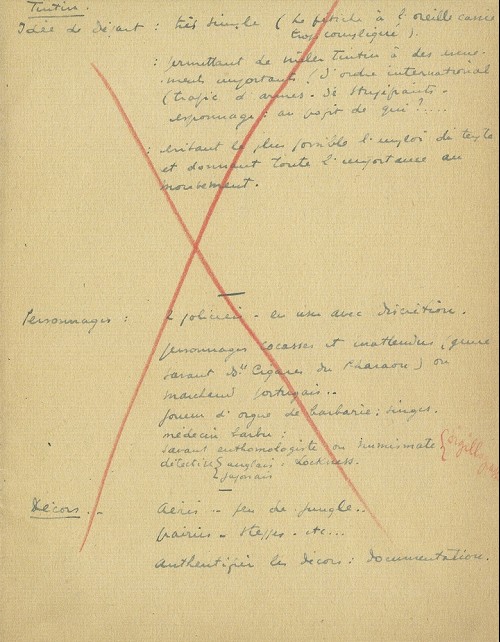 Tintin.
Idée de Départ : très simple (Le fétiche à l'oreille cassée
trop compliqué).
: permettant de mêler Tintin à des évène-
ments importants d'ordre international
(trafic d'armes - de stupéfiants -
espionnage : au profit de qui ?....
: évitant le plus possible l'emploi de texte
et donnant toute l'importance au
mouvement.
Personnages : 2 policiers - en user avec discrétion.
personnages cocasses et inattendus (genre
savant ds Cigares du Pharaon) ou
marchand portugais..
joueur d'orgue de barbarie ; singes.
médecin barbu :
savant enthomologiste ou numismate
détective { anglais : Lockness.
{ japonais
Décors. - Aérés - peu de jungle.
prairies - steppes - etc...
Authentifier les décors : documentation.